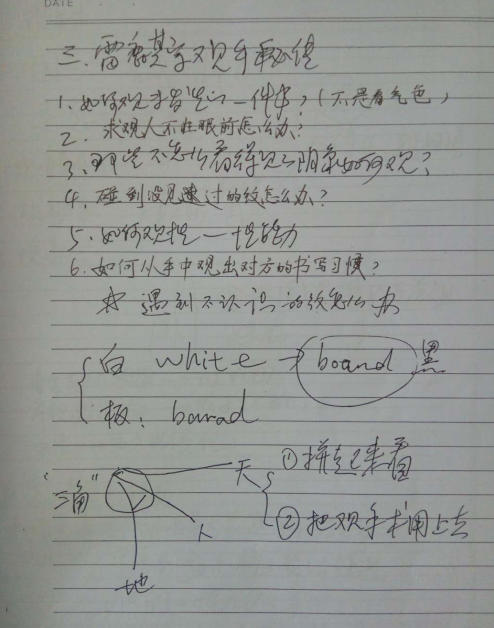 DATE
三、雷 观手秘
1、如何观手当 一件事，（不是看气色）
2、求观人不在眼前怎么办？
3、那些不怎么看得见 阴 如何观？
4、碰到没见过的纹怎么办？
5、如何观性—性能力
6、如何从手中观出对方的书写习惯？
☆ 遇到不认识的纹怎么办
白 white → board 黑
板：barad
"三角" 天 ①拼起来看
人 ②把观手术用上去
地